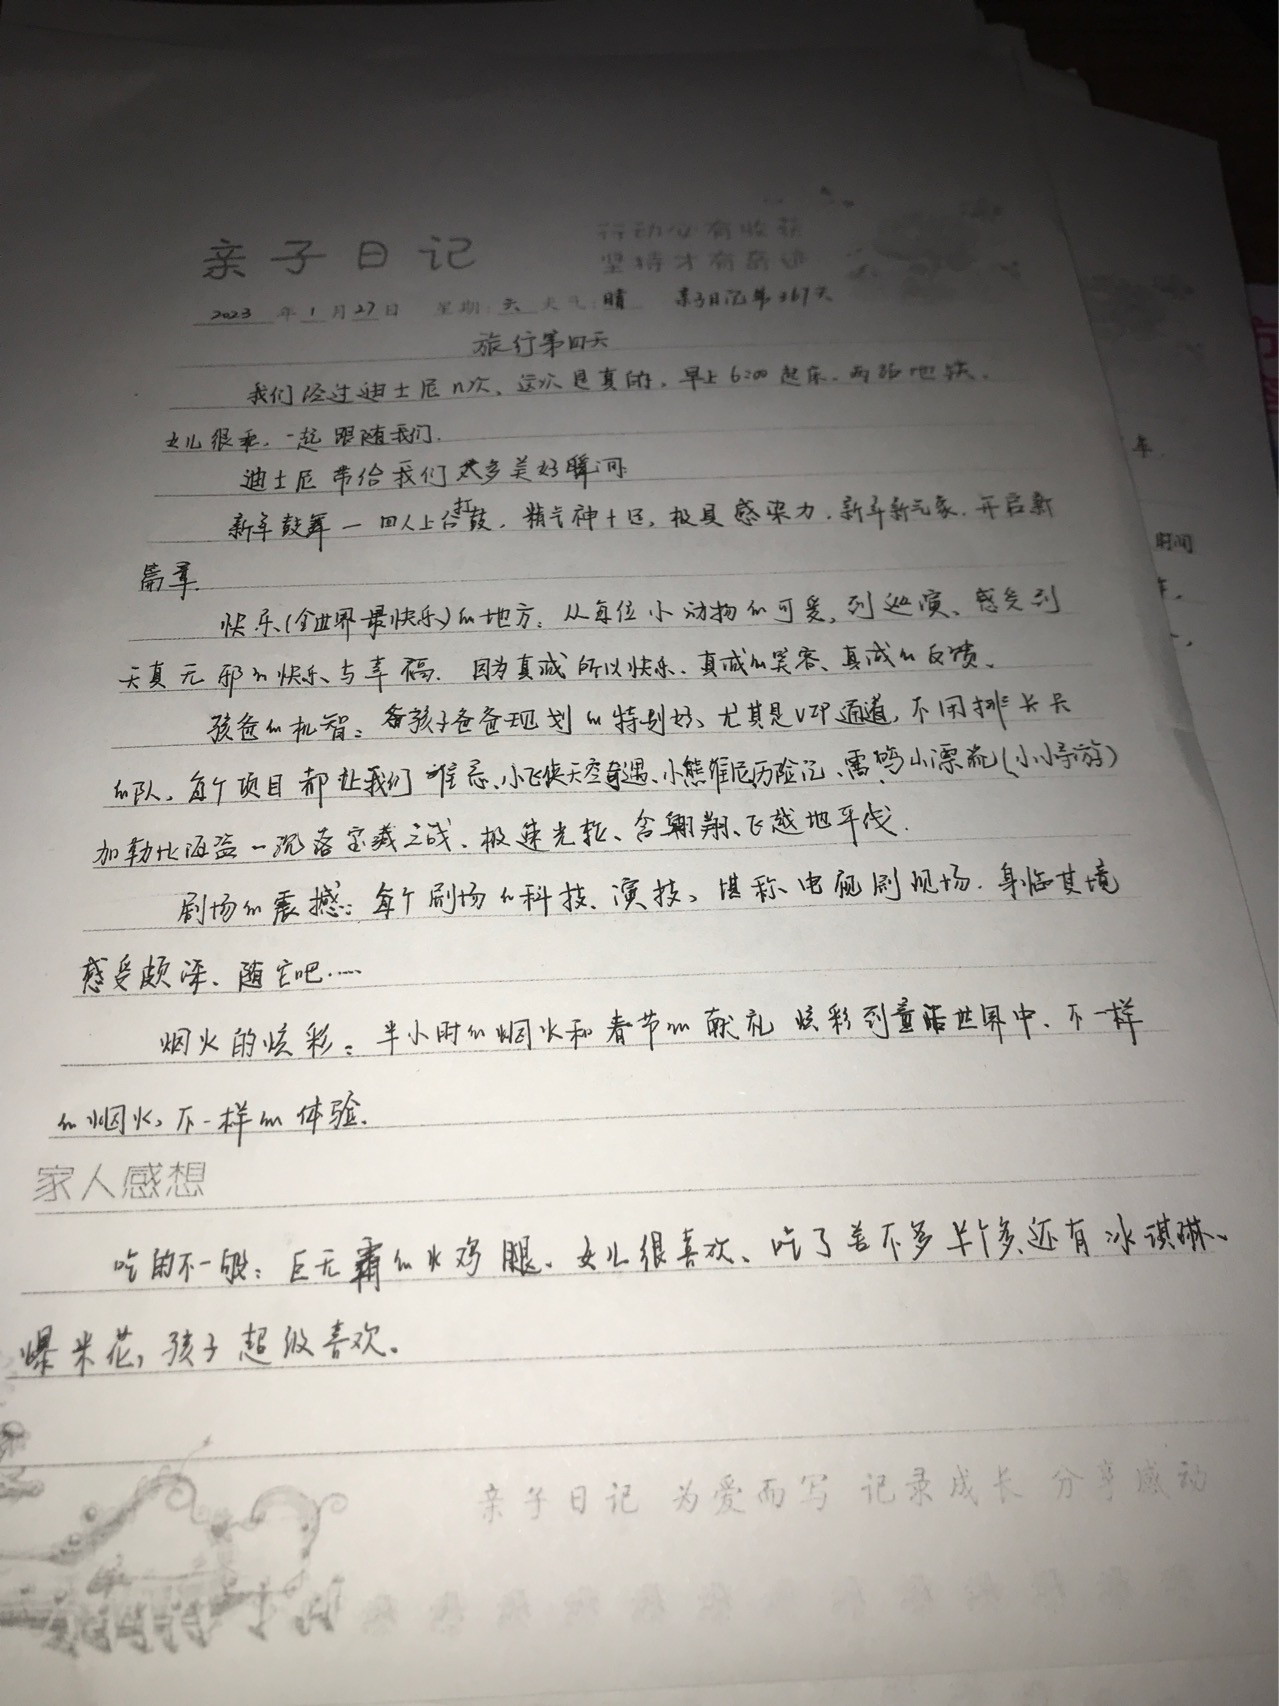 亲子日记
行动必有收获
坚持才有奇迹
2023 年 1 月 27 日 星期:六 天气:晴 亲子日记第367天
旅行第四天
我们经过迪士尼n次、这次是真的,早上6:00起床、地铁、
女儿很乖,一起跟随我们.
迪士尼带给我们太多美好瞬间
新年鼓舞一四人上台打鼓,精气神十足,极具感染力.新年新气象.开启新
篇章.
快乐(全世界最快乐)的地方:从每位小动物的可爱,到巡演、感受到
天真无邪的快乐与幸福.因为真诚所以快乐、真诚的笑容、真诚的反馈、
孩爸的机智:孩子爸爸规划的特别好、尤其是VIP通道,不用排长长
的队,每个项目都让我们难忘、小飞侠天空奇遇、小熊维尼历险记、雷鸣山漂流(小小导游)
加勒比海盗一沉落宝藏之战、极速光轮、含翱翔、飞越地平线.
剧场的震撼:每个剧场的科技、演技、堪称电视剧现场.身临其境
感受颇深、随它吧……
烟火的炫彩:半小时的烟火和春节的献礼 炫彩到童话世界中、不一样
的烟火,不一样的体验.
家人感想
吃的不一般:巨无霸的火鸡腿、女儿很喜欢、吃了差不多半个多、还有冰淇琳、
爆米花,孩子超级喜欢。
亲子日记 为爱而写 记录成长 分享感动
年.
时间